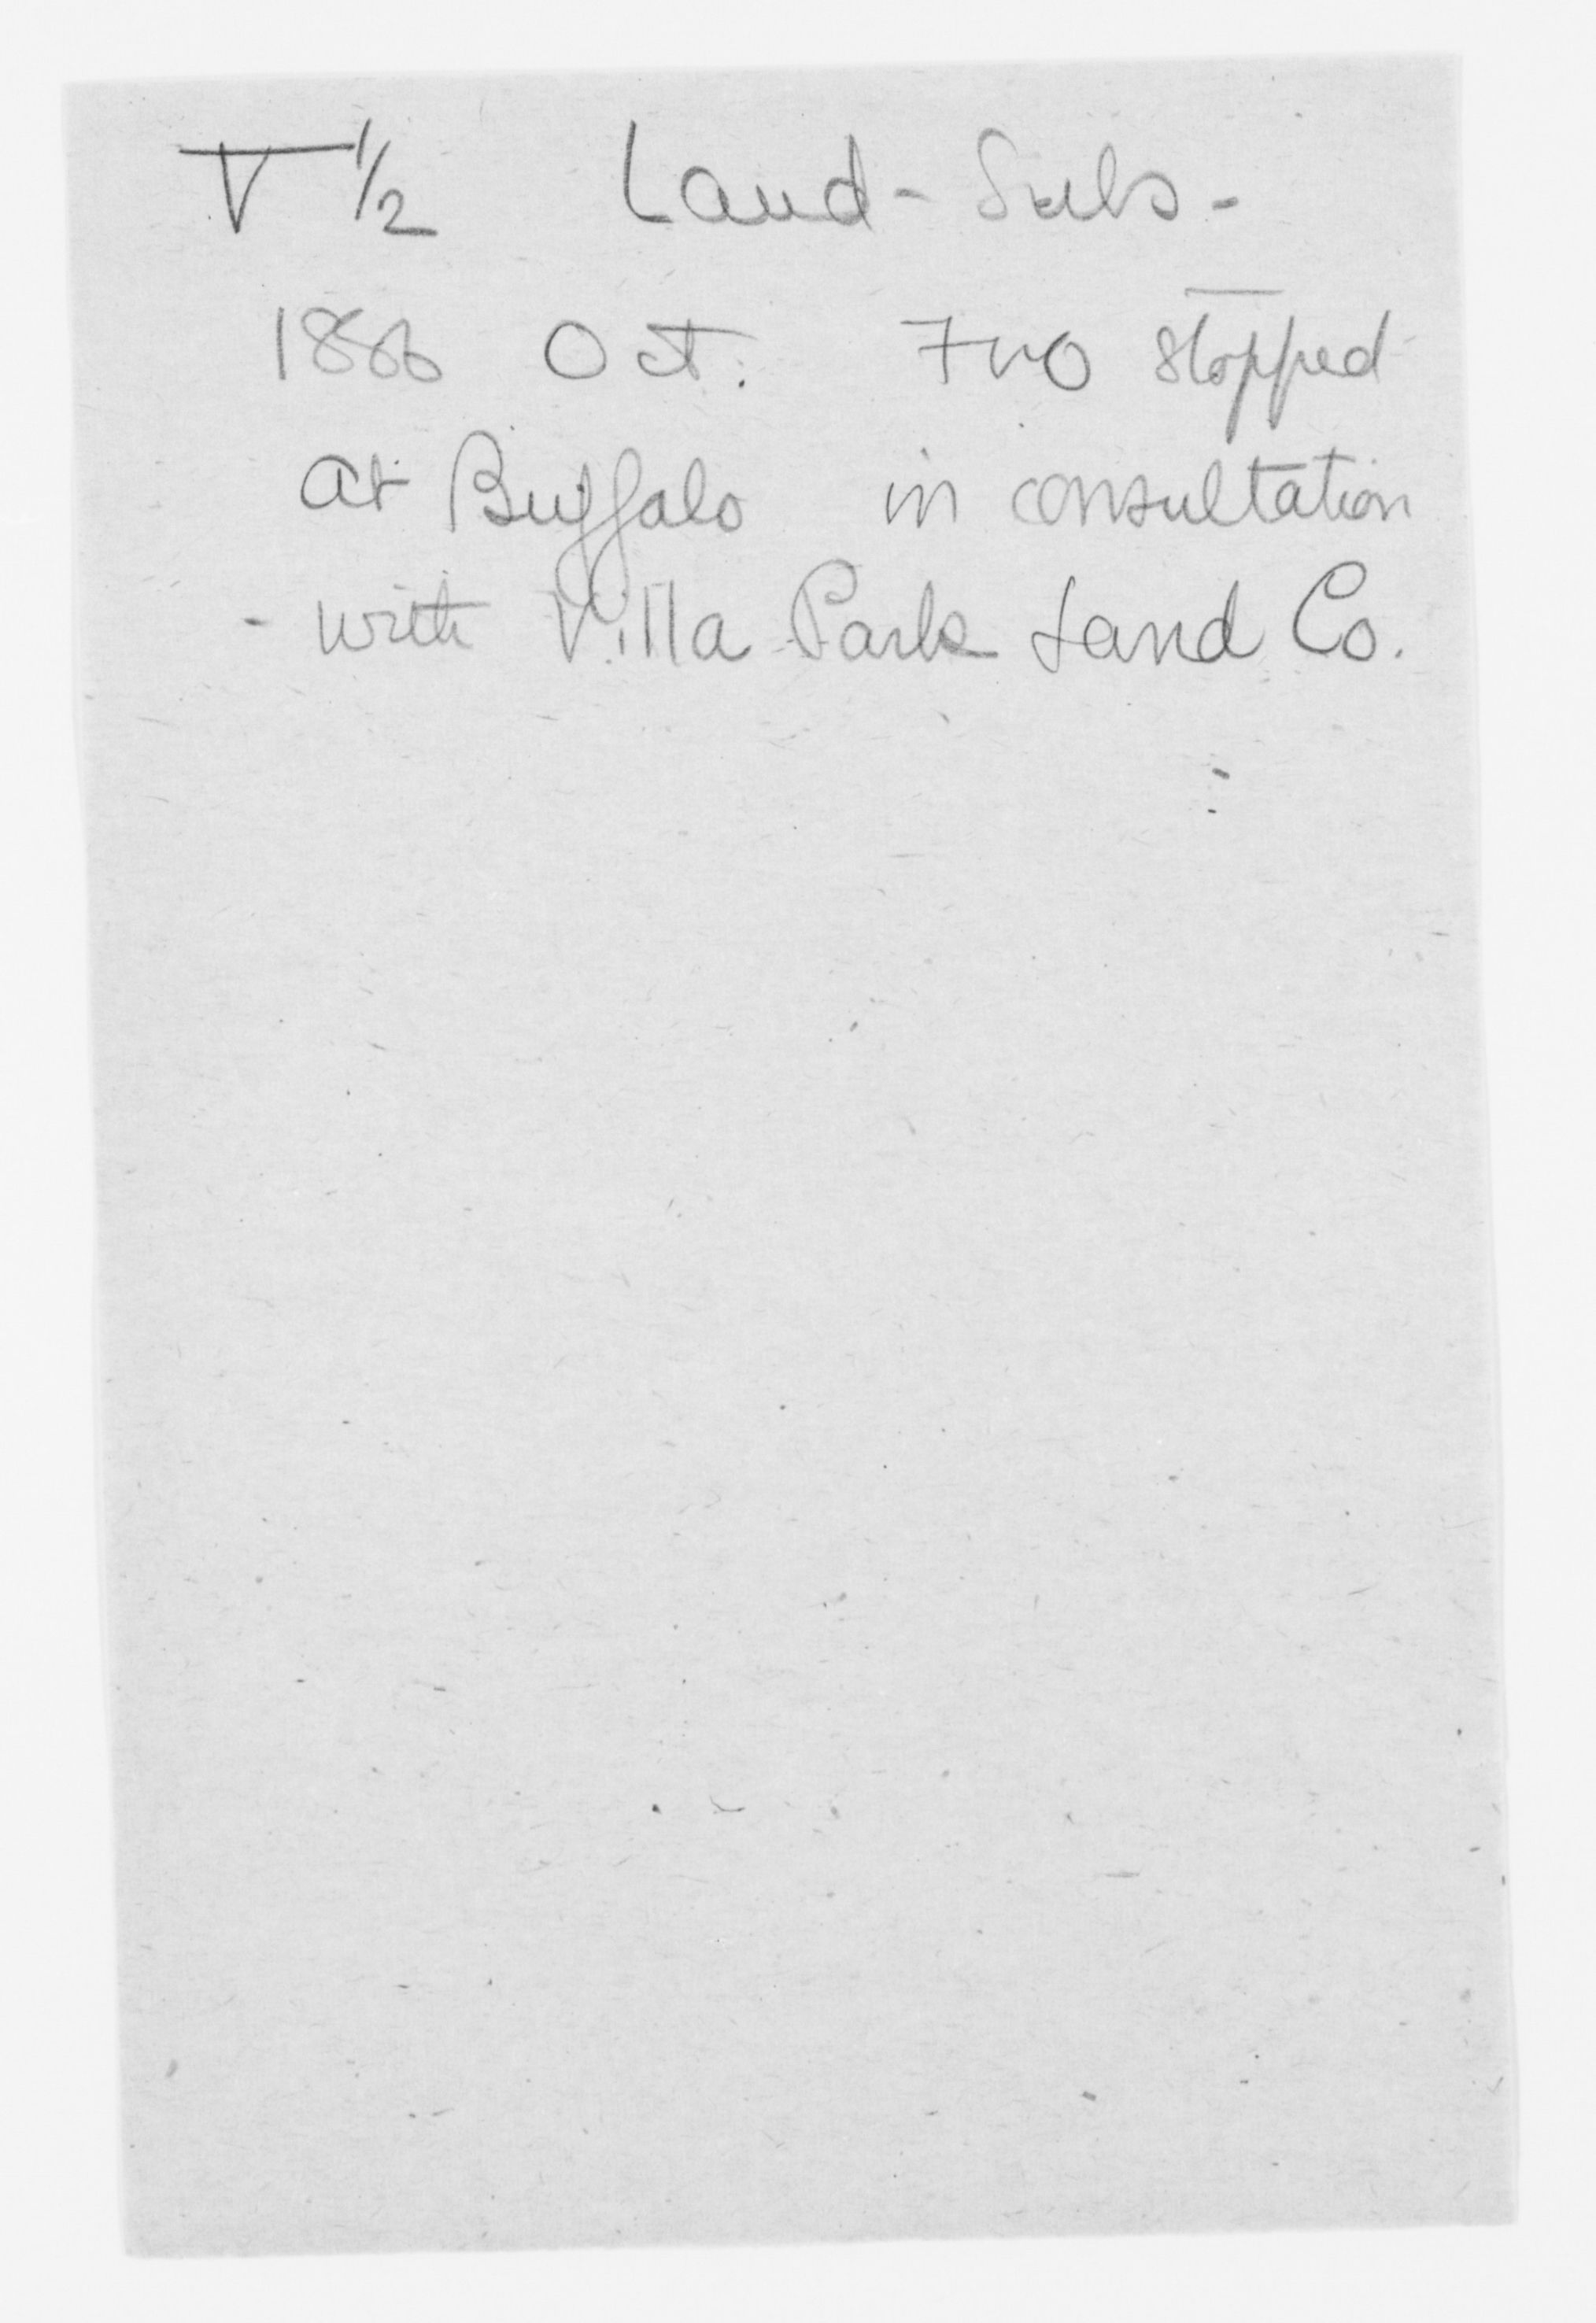 V 1/2 Land-Subs-
1886 Oct. FLO stopped
at Buffalo in consultation
with Villa Park Land Co.